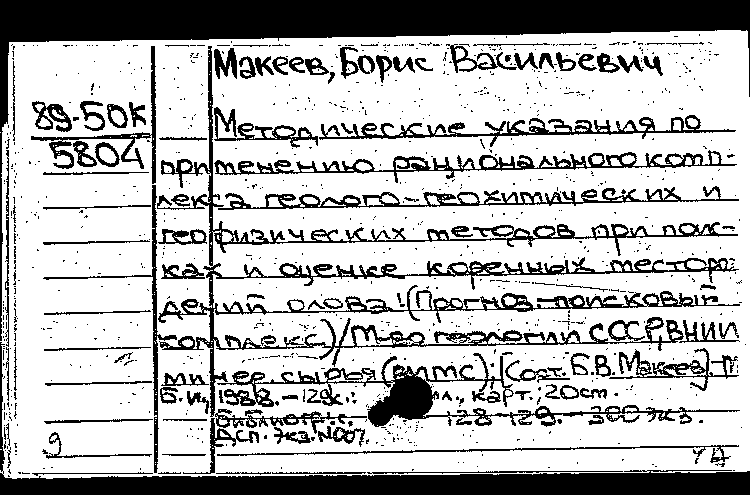 Макеев, Борис Васильевич
89-50к
5804
Методические указания по
применению рационального комп-
лекса геолого-геохимических и
геофизических методов при поис-
ках и оценке коренных месторо
дений олова: (Прогноз.-поисковый
комплекс) / М-во геологии СССР, ВНИИ
минер. сырья (ВИМС); [Сост. Б.В. Макеев].
Б.и., 1988. - 129с.: ил., карт.; 20см.
Библиогр.: с. 128-129. - 300 экз.
ДСП. Экз. N007.
9